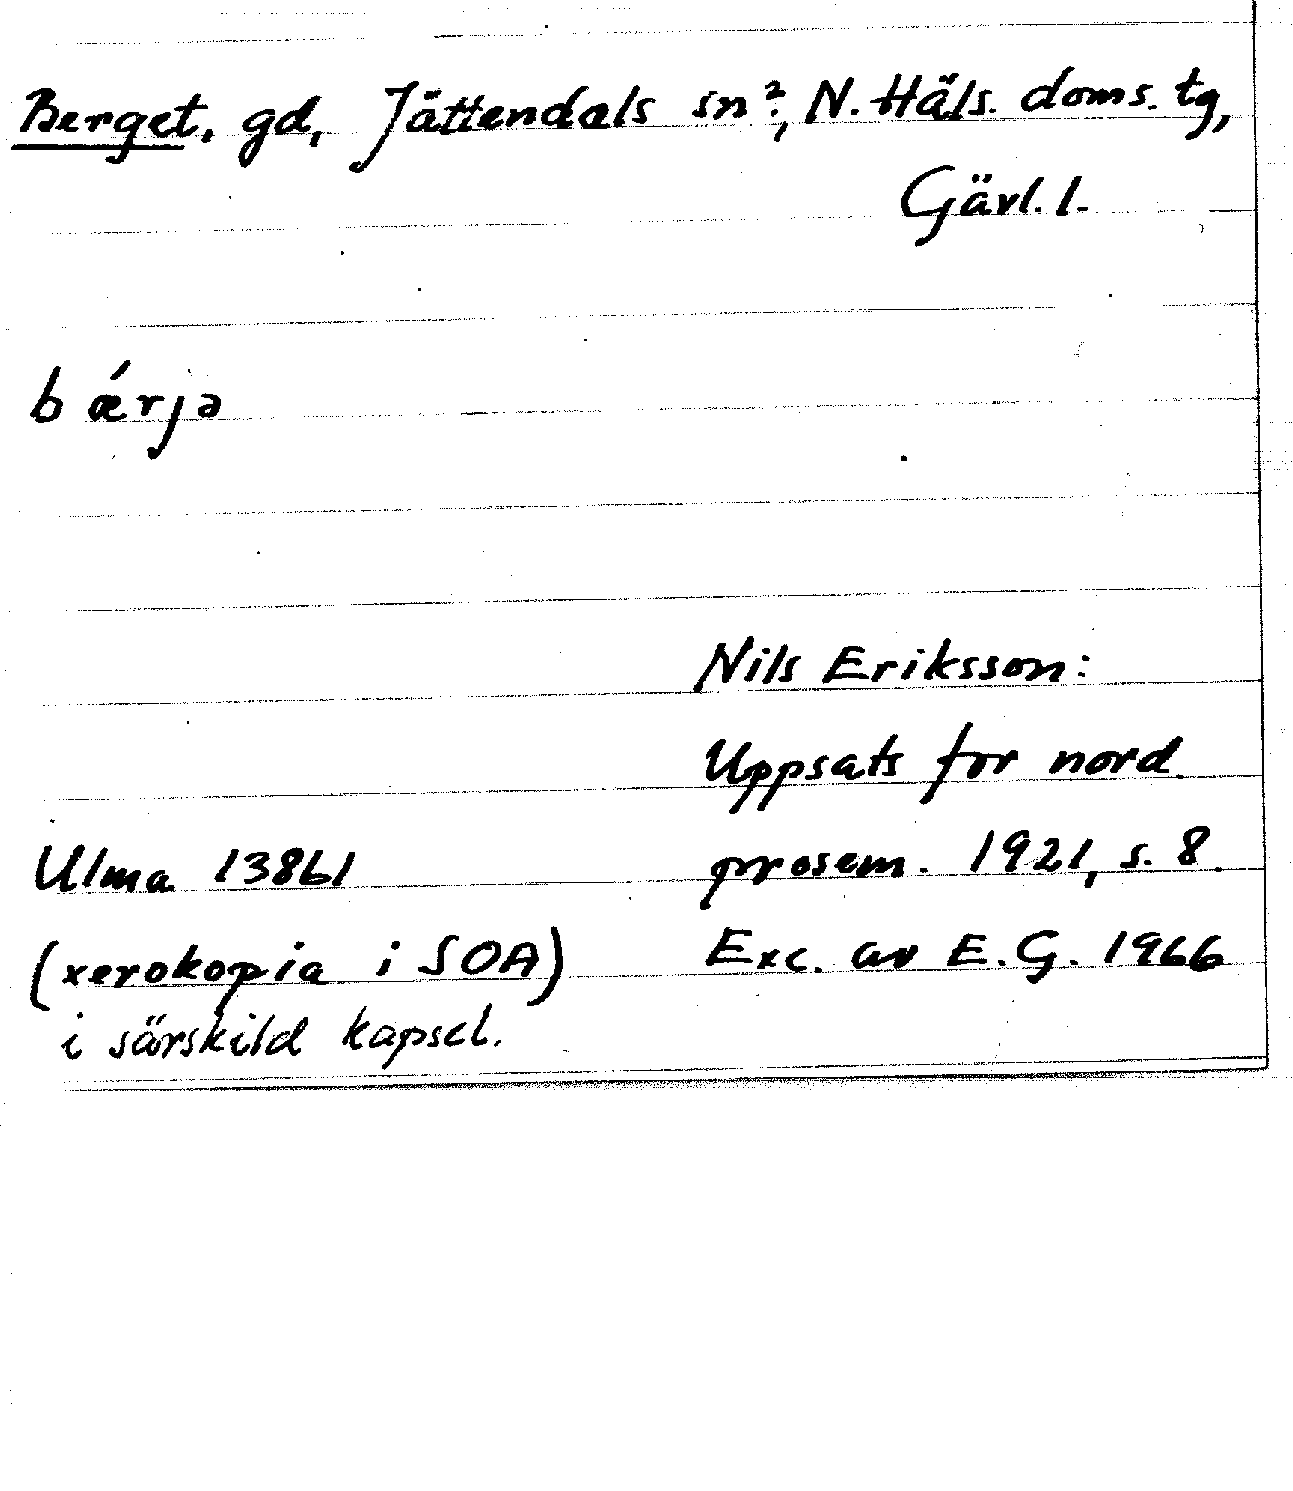 Berget, gd, Jättendals sn?, N. Häls. doms. tg,
Gävl. l.
bǽrjə
Nils Eriksson:
Uppsats for nord.
Ulma 13861 prosem. 1921, s. 8.
(xerokopia i SOA) Exc. av E.G. 1966
i särskild kapsel.